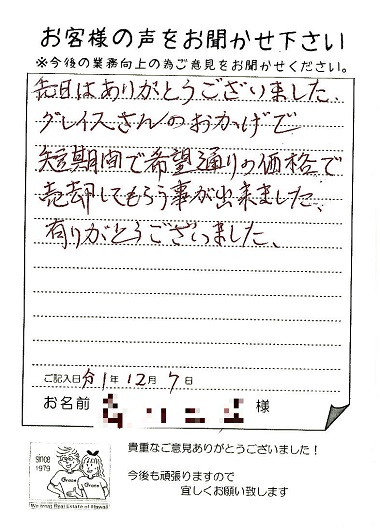 お客様の声をお聞かせ下さい
※今後の業務向上の為ご意見をお聞かせください。
先日はありがとうございました、
グレイスさんのおかげで
短期間で希望通りの価格で
売却してもらう事が出来ました、
有りがとうございました、
ご記入日 令1年 12月 7日
お名前 様
since
1979
Grace
Grace
We treat Real Estate of Hawaii
貴重なご意見ありがとうございました!
今後も頑張りますので
宜しくお願い致します